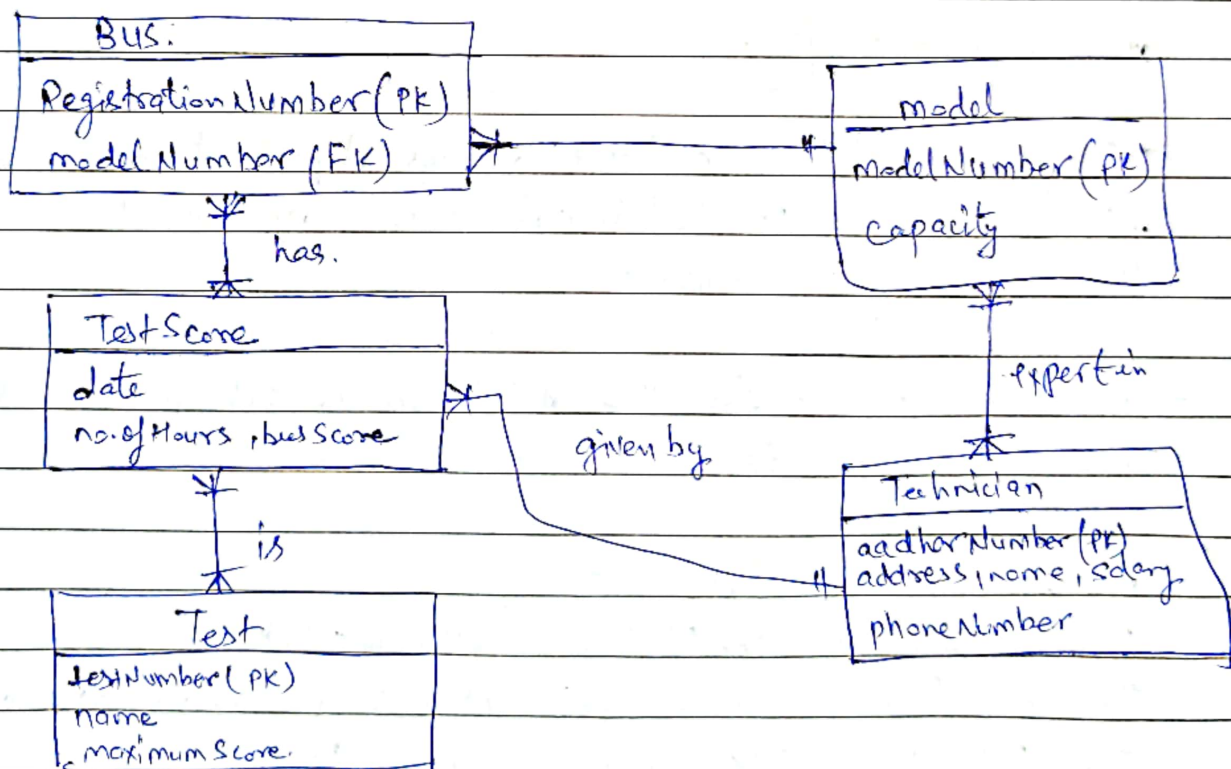 Bus.
RegistrationNumber(PK)
modelNumber(FK)
model
modelNumber(PK)
capacity
has.
TestScore
date
no.ofHours, busScore
given by
expert in
Technician
aadharNumber(PK)
address, name, salary
phoneNumber
is
Test
testNumber(PK)
name
maximumScore.